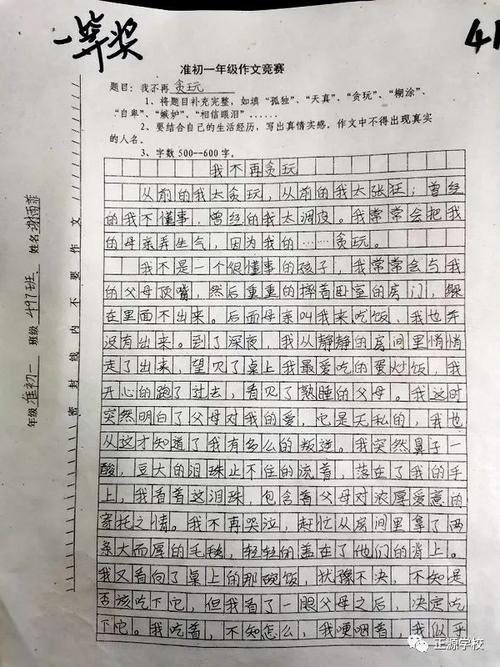 一等奖
41
准初一年级作文竞赛
题目：我不再贪玩
1、将题目补充完整，如填“孤独”、“天真”、“贪玩”、“糊涂”、
“自卑”、“嫉妒”、“相信眼泪”……
2、要结合自己的生活经历，写出真情实感，作文中不得出现真实
的人名。
3、字数500--600字。
我不再贪玩
从前的我太贪玩，从前的我太张狂；曾经
的我不懂事，曾经的我太调皮。我常常会把我
的母亲弄生气，因为我的……贪玩。
我不是一个很懂事的孩子，我常常会与我
的父母顶嘴，然后重重的摔着卧室的房门，躲
在里面不出来。后面母亲叫我来吃饭，我也并
没有出来。到了深夜，我从静静的房间里悄悄
走了出来，望见了桌上我最爱吃的蛋炒饭，我
开心的跑了过去，看见了熟睡的父母。我这时
突然明白了父母对我的爱，它是无私的，我也
从这才知道了我有多么的叛逆。我突然鼻子一
酸，豆大的泪珠止不住的流着，落在了我的手
上，我看着这泪珠，包含着父母对浓厚爱意的
寄托之情。我不再哭泣，赶忙从房间里拿了两
条大而厚的毛毯，轻轻的盖在了他们的背上。
我又看向了桌上的那碗饭，犹豫不决，不知是
否该吃下它，但我看了一眼父母之后，决定吃
下它。我吃着，不知怎么，我哽咽着，我似乎
年级 准初一 班级 497班、 姓名
密封线内不要作文
正源学校